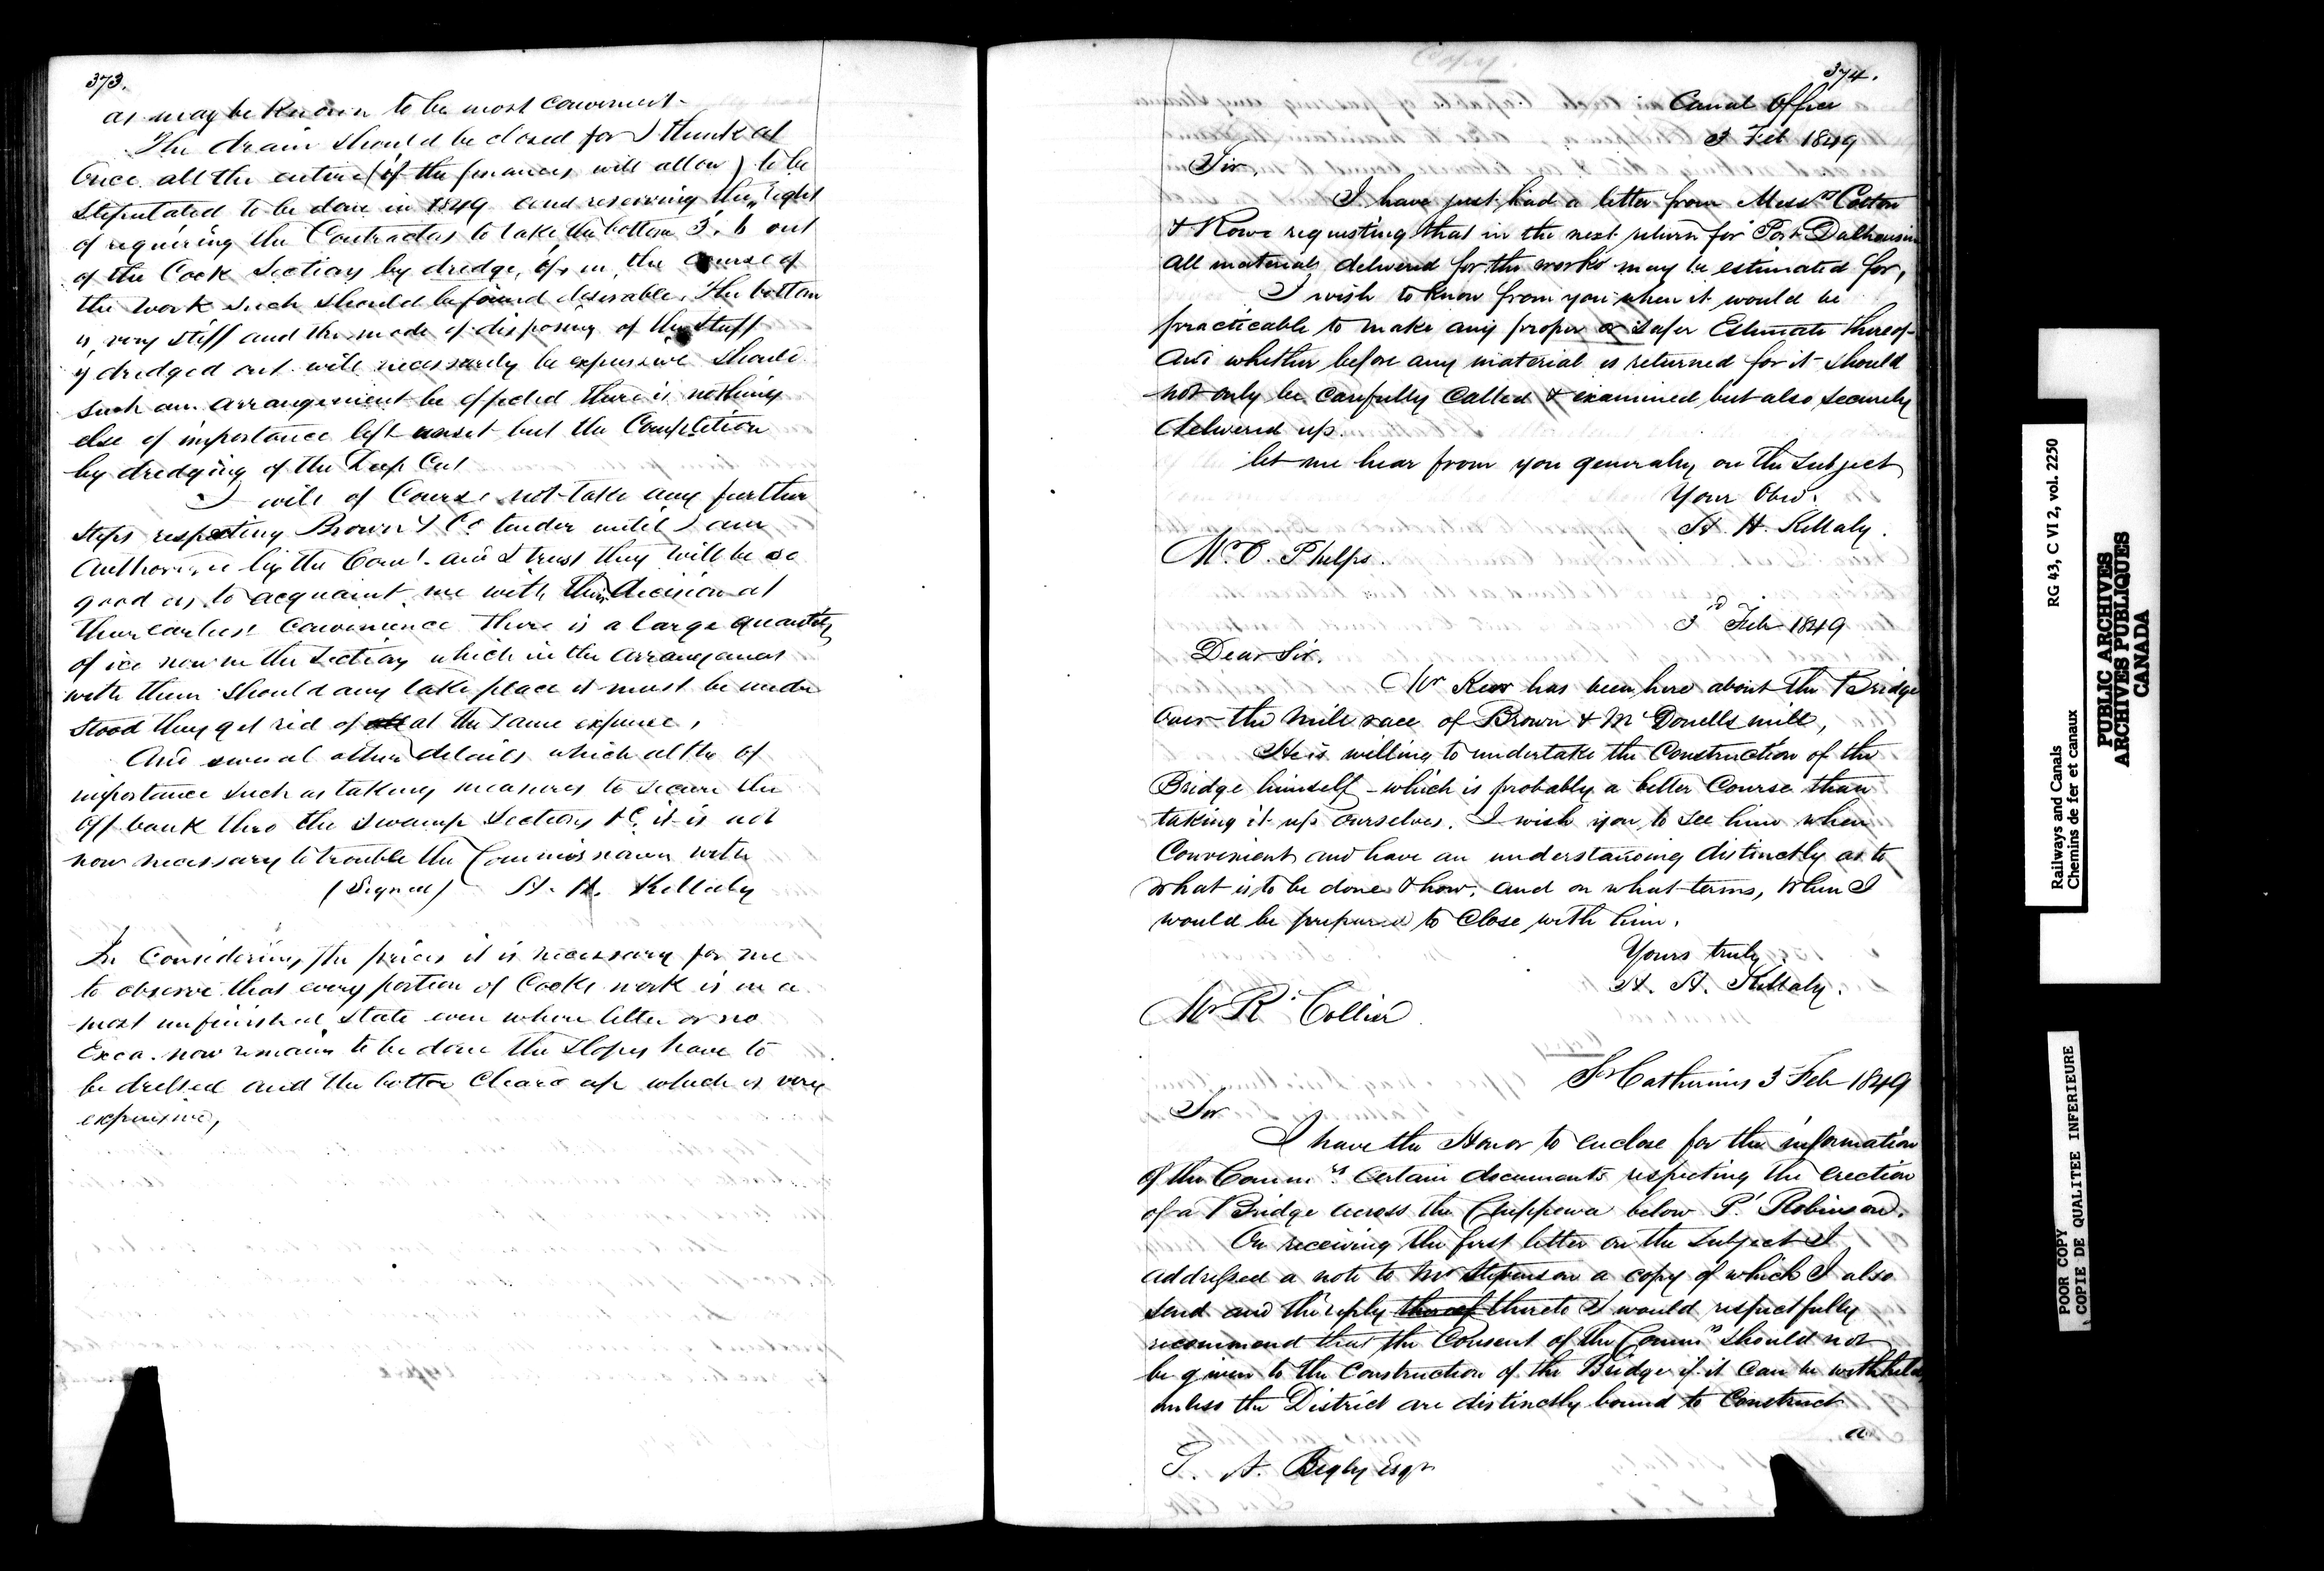 373.
as may be known to be most convenient.
The drain should be closed for I think at
Once all the entire (if the finances will allow) to be
stipulated to be done in 1849 and reserving the right
of requiring the Contractors to take the bottom 3'. 6 out
of the Cook Sections by dredge, if, in the course of
the work such should be found desirable. The bottom
is very stiff and the mode of disposing of the stuff
if dredged out will necessarily be expensive should
such an arrangement be effected there is nothing
else of importance left unset but the Completion
by dredging of the Deep Cut
I will of Course not take any further
steps respecting Brown & Co tender until I am
Authorized by the Com. and I trust they will be so
good as to acquaint me with their decision at
their earliest Convenience There is a large quantity
of ice now in the Sections which in the arrangement
with them should any take place it must be under
stood they get rid of at the same expense,
And several other details which altho of
importance such as taking measures to secure the
Off bank thro the swamp Sections &C. it is not
now necessary to trouble the Commissioners with
(Signed) H. H. Killaly
In Considering the prices it is necessary for me
to observe that every portion of Cooks work is in a
most unfinished State even where little or no
Exca. now remains to be done the slopes have to
be dressed and the bottom Cleared up which is very
expensive,
Copy.
374.
Canal Office
3 Feb 1849
Sir,
I have just had a letter from Messrs Cotton
& Rowe requesting that in the next return for Port Dalhousie
all materials delivered for the works may be estimated for,
I wish to know from you when it would be
practicable to make any proper or safer Estimate thereof
And whether before any material is returned for it should
not only be carefully Culled & examined but also securely
delivered up.
let me hear from you generally on the subject
Your Obed.
H. H. Killaly.
Mr. O. Phelps.
3d Feb 1849
Dear Sir.
Mr Keer has been here about the Bridge
Over the Mill race of Brown & McDonells mill,
He is willing to undertake the Construction of the
Bridge himself - which is probably a better Course than
taking it up ourselves. I wish you to see him when
Convenient and have an understanding distinctly as to
what is to be done & how. and on what terms, When I
would be prepared to Close with him.
Yours truly
H. H. Killaly.
Mr R. Collier
Copy
St Catherines 3 Feb 1849
Sir
I have the Honor to enclose for the information
of the Commrs. Certain documents respecting the erection
of a Bridge across the Chippewa below Pt. Robinson.
On receiving the first letter on the subject I
addressed a note to Mr Stepenson a copy of which I also
send and the reply thereof thereto I would respectfully
recommend that the Consent of the Commrs should not
be given to the Construction of the Bridge if it can be withheld,
unless the District are distinctly bound to Construct
a
T. A. Begly Esqr
RG 43, C VI 2, vol. 2250
Railways and Canals
Chemins de fer et canaux
PUBLIC ARCHIVES
ARCHIVES PUBLIQUES
CANADA
POOR COPY
COPIE DE QUALITEE INFERIEURE